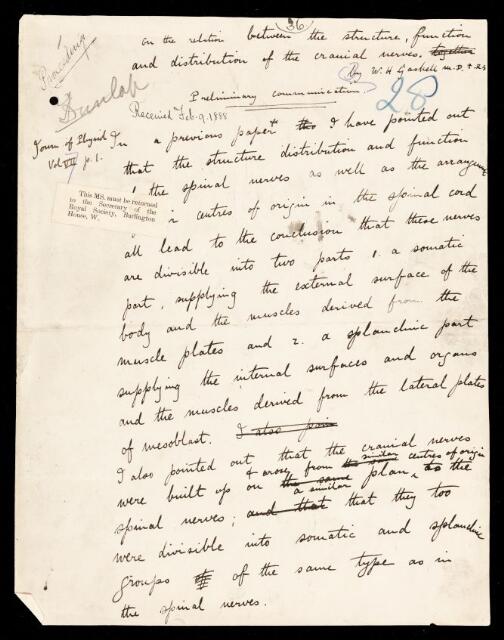 36
On the relation between the structure, function
and distribution of the cranial nerves. together
By W. H. Gaskell M.D. F.R.S
Proceedings
Dunlop
28
Preliminary communication
Received Feb. 9. 1888
Journ of Physiol
Vol VII p. 1.
In a previous paper I have pointed out
that the structure distribution and function
the spinal nerves as well as the arrangement
centres of origin in the spinal cord
all lead to the conclusion that these nerves
are divisible into two parts 1. a somatic
part, supplying the external surface of the
body and the muscles derived from the
muscle plates and 2. a splanchnic part
supplying the internal surfaces and organs
and the muscles derived from the lateral plates
of mesoblast. I also poin
I also pointed out that the cranial nerves
were built up on the same a similar plan, & arose from the same similar centres of origin as the
spinal nerves; and that that they too
were divisible into somatic and splanchnic
groups of the same type as in
the spinal nerves.
This MS. must be returned
to the Secretary of the
Royal Society, Burlington
House, W.